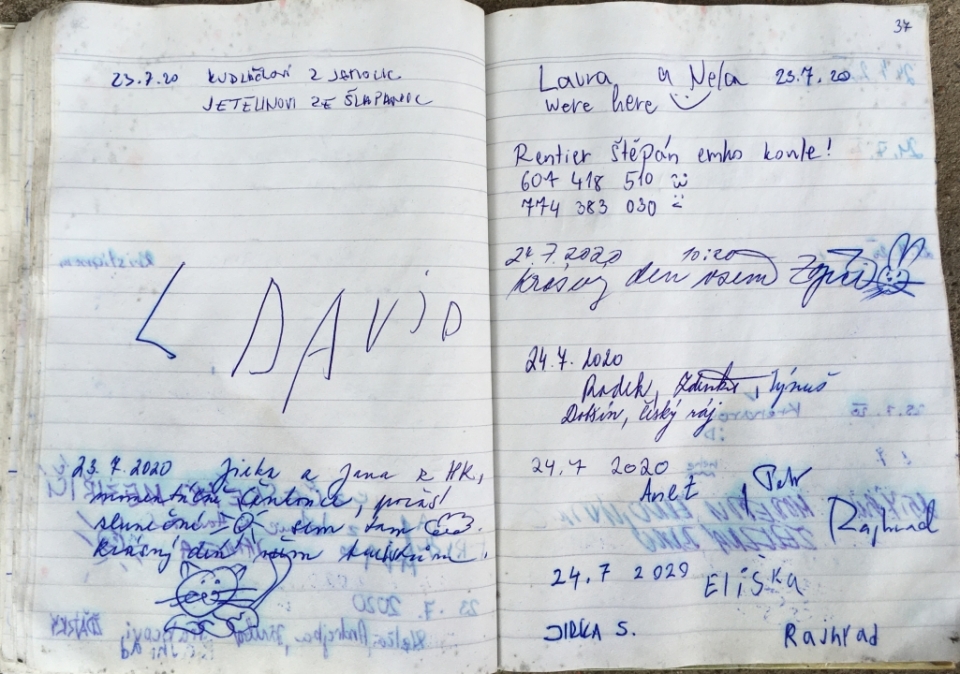 23.7.20 KUDLÁČKOVI Z JAMOLIC
JETELINOVI ZE ŠLAPANIC
DAVID
23. 7. 2020 Jirka a Jana z HK,
momentálně počasí
slunečné sem tam
krásný den všem
37
Laura a Nela 23.7.20
were here
Rentier Štěpán emho konle!
607 418 510
774 383 030
24.7.2020 10:20
Krásný den všem
24.7. 2020
Radek, Zdenka, Týnuš
Doksín, Český ráj
24.7 2020
Anet, Petr
Rajhrad
24.7 2020 Eliška
JIRKA S. Rajhrad